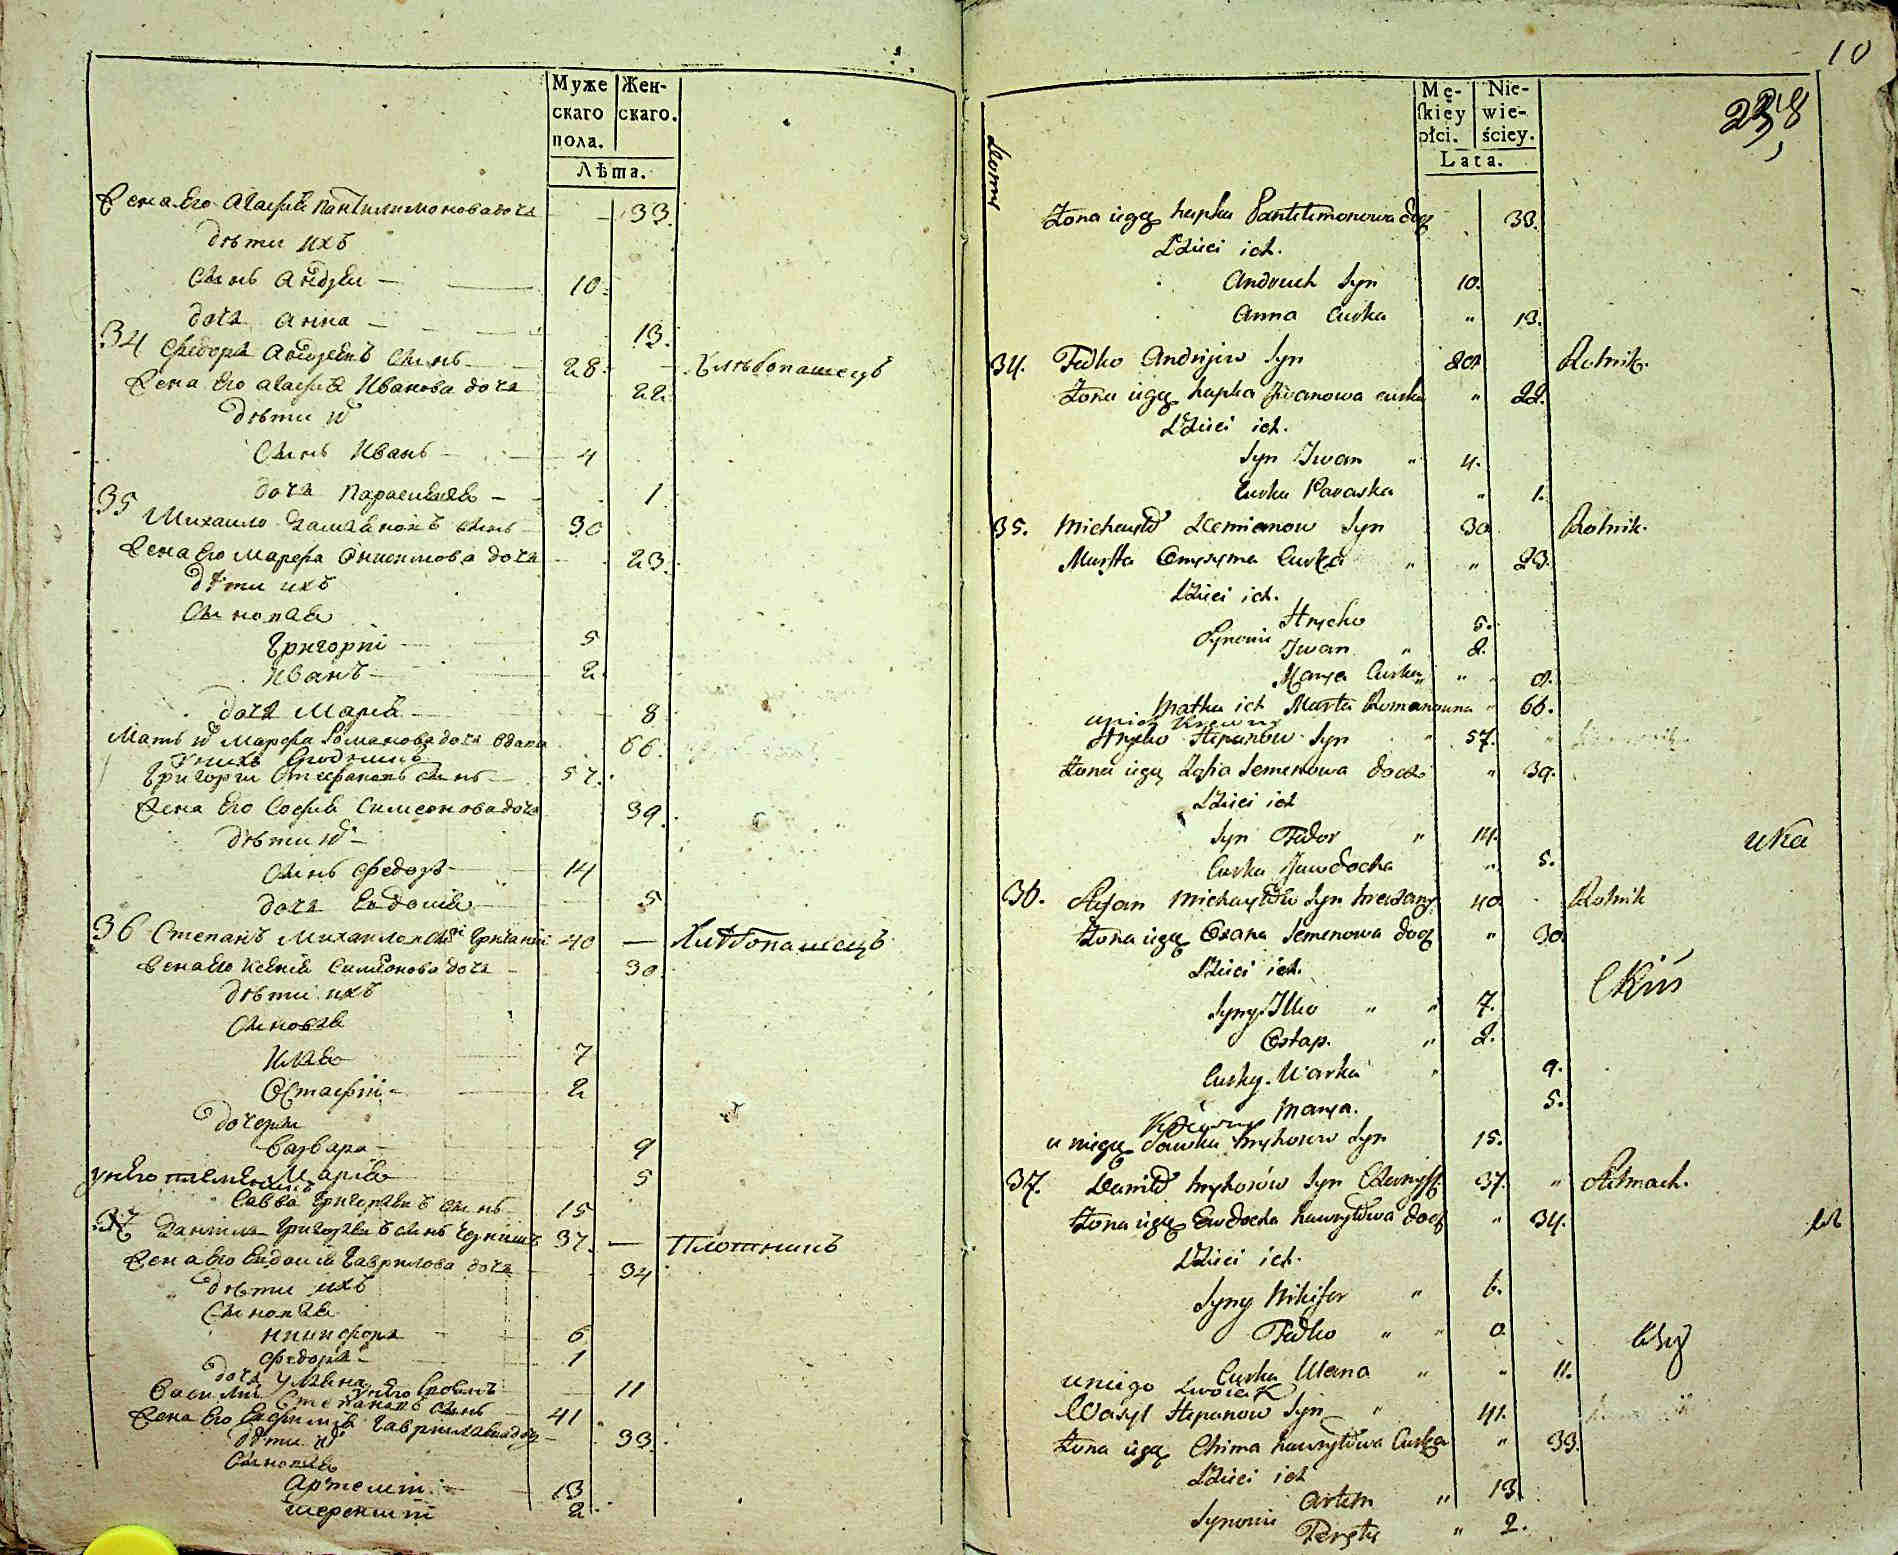 Муже
скаго
пола.
Жен-
скаго.
Лѣта.
Жена Его Агафия Пантилимонова дочь 33.
дѣти ихъ
Сынъ Андрей 10.
дочь Анна 13.
34 Федоръ Андреевъ Сынъ 28. Хлѣбопашецъ
Жена Его Агафия Иванова дочь 22
дѣти их
Сынъ Иванъ 4
дочь Параскевия 1
35 Михайло Сынъ 30
Жена Его Марфа Онисимова дочь 23.
дѣти ихъ
Сыновья
Григорий 5
Иванъ 2.
дочь Мария 8
Мать их Марфа Романова дочь вдова 66.
у нихъ
Григорий Стефановъ Сынъ 57.
Жена Его София Симеонова дочь 39.
дѣти их
Сынъ Федоръ 14
дочь Евдокия 5
36 Степанъ Михайловъ 40 — Хлѣбопашецъ
Жена Его Ксения Симеонова дочь 30.
дѣти ихъ
Сыновья
Илья 7
Остафий 2
дочери
Варвара 9
Мария 5
у него племянникъ
Савва Григорьевъ Сынъ 15
37 Даниила Григорьевъ Сынъ 37. — Плотникъ
Жена Его Евдокия Гаврилова дочь 34
дѣти ихъ
Сыновья
Никифоръ 6
Федоръ 1
дочь Улияна 11
у него
Василий Стефановъ Сынъ 41
Жена Его Евфимия Гаврилова дочь 33.
дѣти их
Сыновья
Артемий 13
Терентий 2.
10
Domy
Mę-
skiey
płci.
Nie-
wie-
ściey.
Lata.
238
Żona iego hapka Pantelimonowa doc 33.
Dzieci ich.
Andruch Syn 10.
Anna Curka " 13.
34. Fedko Andrijew Syn 28 Rolnik.
Żona iego hapka Jwanowa curka " 22.
Dzieci ich.
Syn Jwan " 4.
Curka Paraska " 1.
35. Michayło Demianow Syn 30 Rolnik.
Marta Curka " " 23.
Dzieci ich.
Synowie Hryćko 5.
Jwan " 2.
Marya Curka " " 8.
Matka ich Marta Romanowna " 66.
u nich Krewny
Hryćko Stepanow Syn " 57. "
Żona iego Zofia Semenowa docz " 39.
Dzieci ich
Syn Fedor " 14.
Curka Jawdocha " 5.
uka
36. Stefan Michayłów Syn 40 Rolnik
Żona iego Oxana Semenowa doc " 30.
Dzieci ich.
Syny Ilko " " 7.
Ostap. " 2.
Curky. Warka " 9.
Marya. 5.
Krewny
u niego Sawka hryhorow Syn 15.
37. Daniło hryhorów Syn 37. " Stelmach.
Żona iego Ewdocha hawryłowa doc " 34.
Dzieci ich.
Syny Nikifor " 6.
Fedko " "
Curka Ulana " " 11.
u niego
Wasyl Stepanow Syn " 41.
Żona iego Chima hawryłowa Curka " 33.
Dzieci ich
Synowie Artem " 13.
" 2.